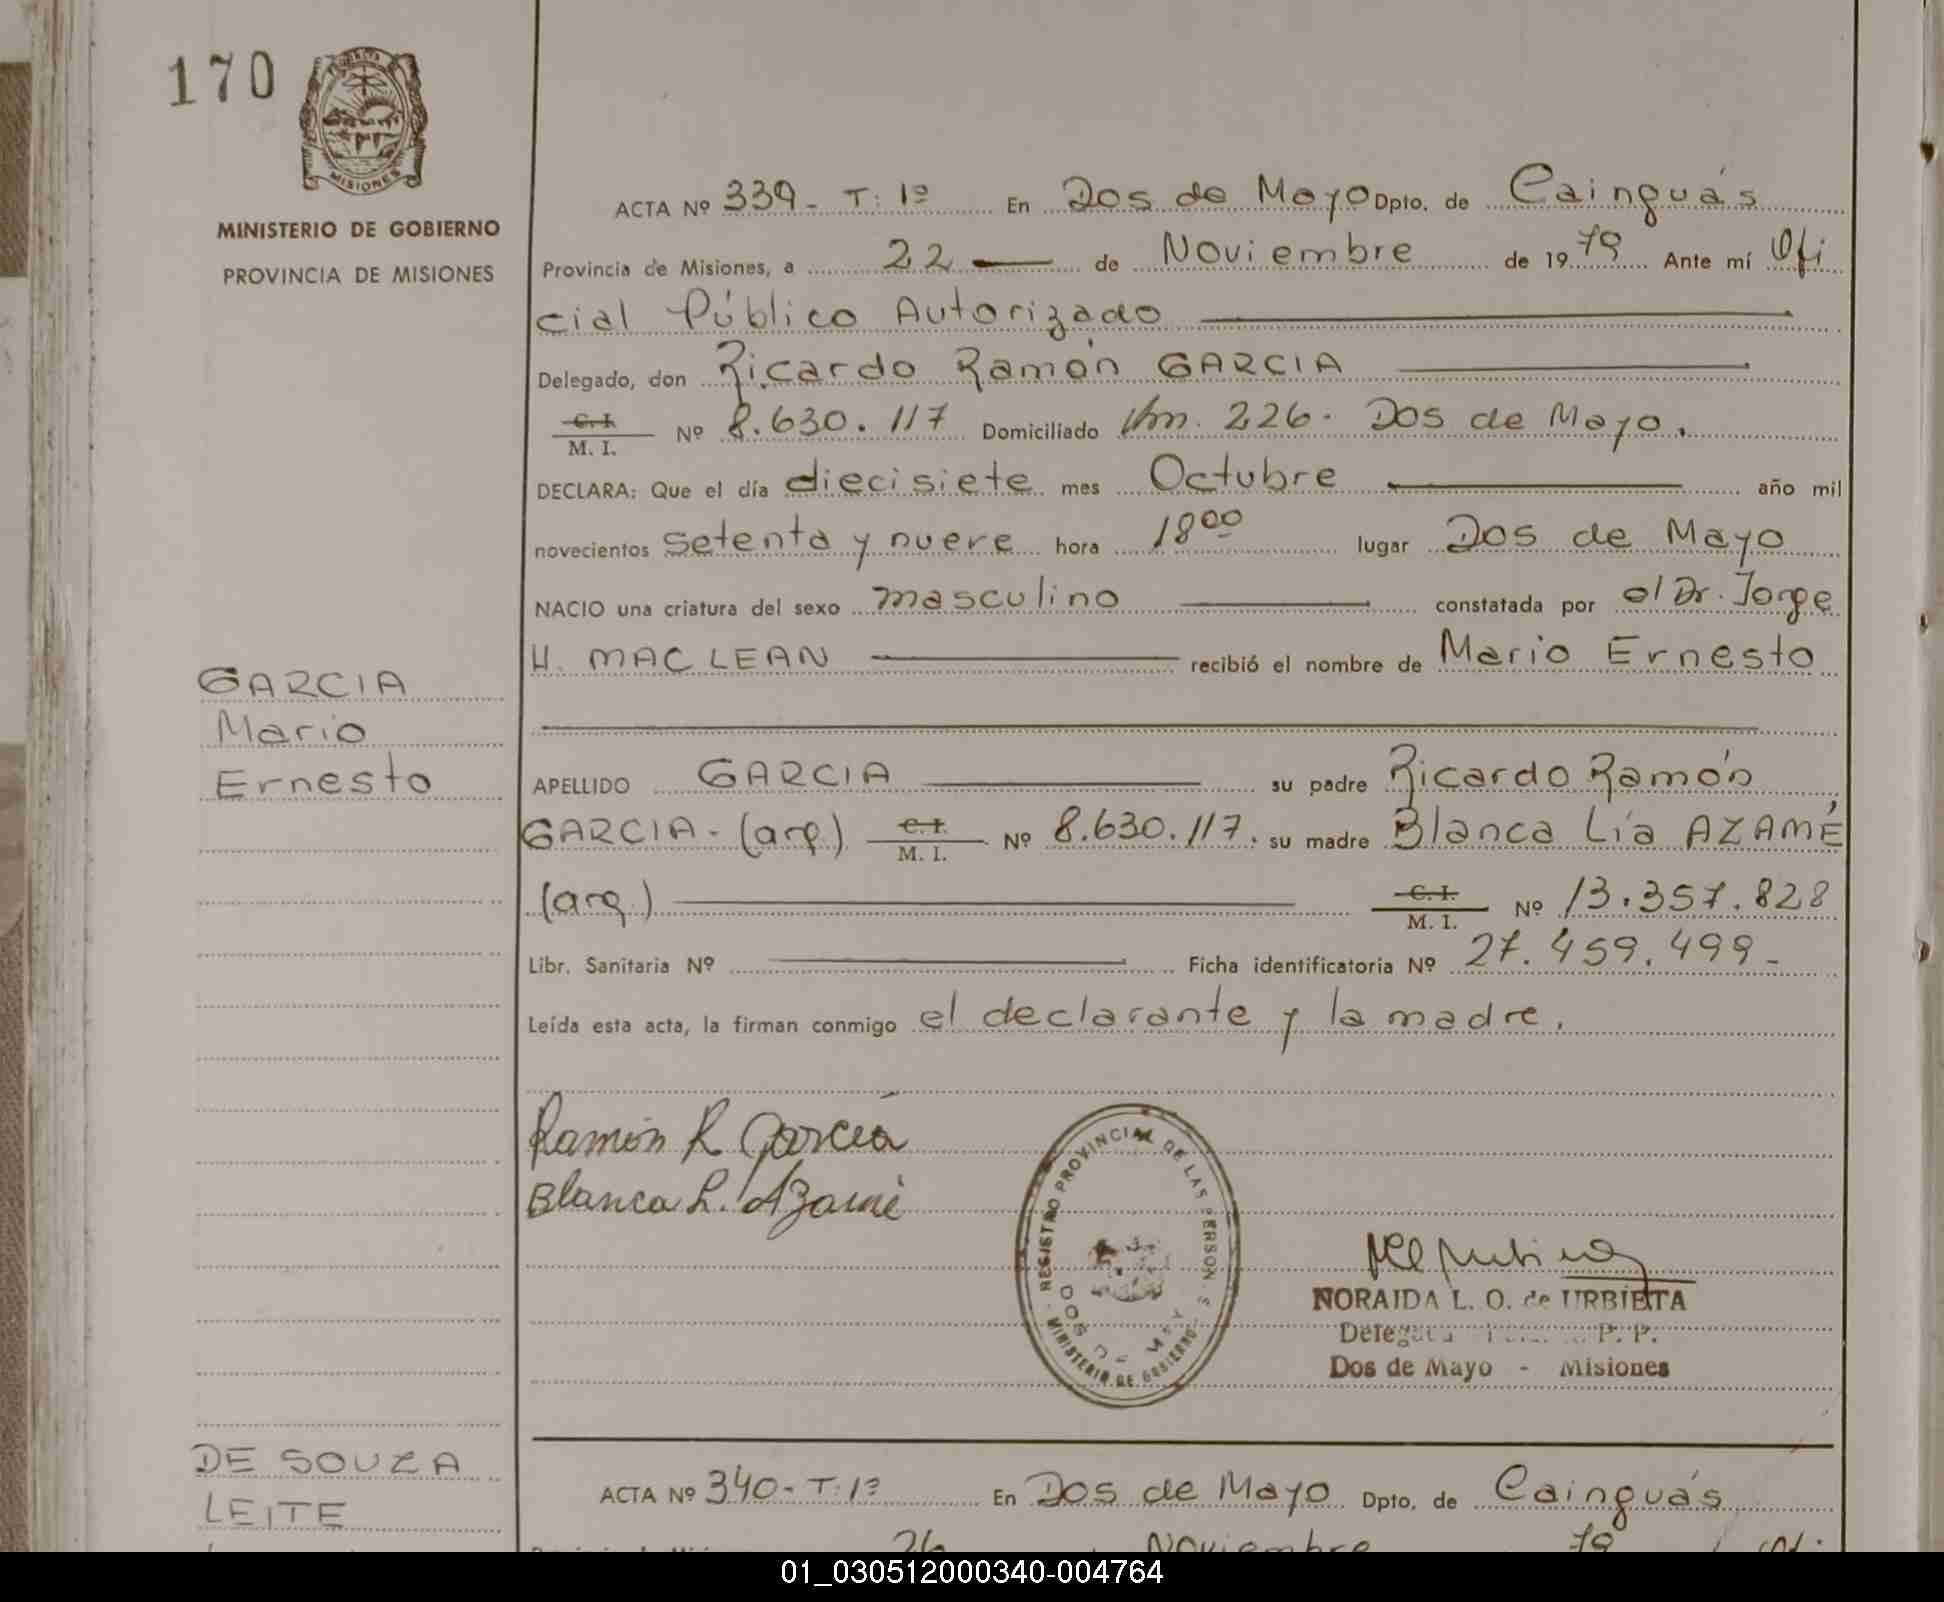 170
MISIONES
MINISTERIO DE GOBIERNO
PROVINCIA DE MISIONES
GARCIA
Mario
Ernesto
ACTA Nº 339- T: 1º En Dos de Mayo Dpto. de Cainguás
Provincia de Misiones, a 22 de Noviembre de 1979 Ante mí Ofi
cial Público Autorizado
Delegado, don Ricardo Ramón GARCIA
C. I.
M. I. Nº 8.630.117 Domiciliado Km. 226. Dos de Mayo.
DECLARA: Que el día diecisiete mes Octubre año mil
novecientos setenta y nueve hora 18⁰⁰ lugar Dos de Mayo
NACIO una criatura del sexo masculino constatada por el Dr. Jorge
H. MAC LEAN recibió el nombre de Mario Ernesto
APELLIDO GARCIA su padre Ricardo Ramón
GARCIA - (arg.) C. I. M. I. Nº 8.630.117. su madre Blanca Lía AZAMÉ
(arg.) C. I. M. I. Nº 13.357.828
Libr. Sanitaria Nº Ficha identificatoria Nº 27.459.499-
Leída esta acta, la firman conmigo el declarante y la madre.
Ramón R García
Blanca L. Azamé
REGISTRO PROVINCIAL DE LAS PERSONAS
MINISTERIO DE GOBIERNO
DOS DE MAYO
NORAIDA L. O. de URBIETA
P. P.
Dos de Mayo - Misiones
DE SOUZA
LEITE
ACTA Nº 340- T: 1º En Dos de Mayo Dpto. de Cainguás
26 Noviembre 79
01_030512000340-004764